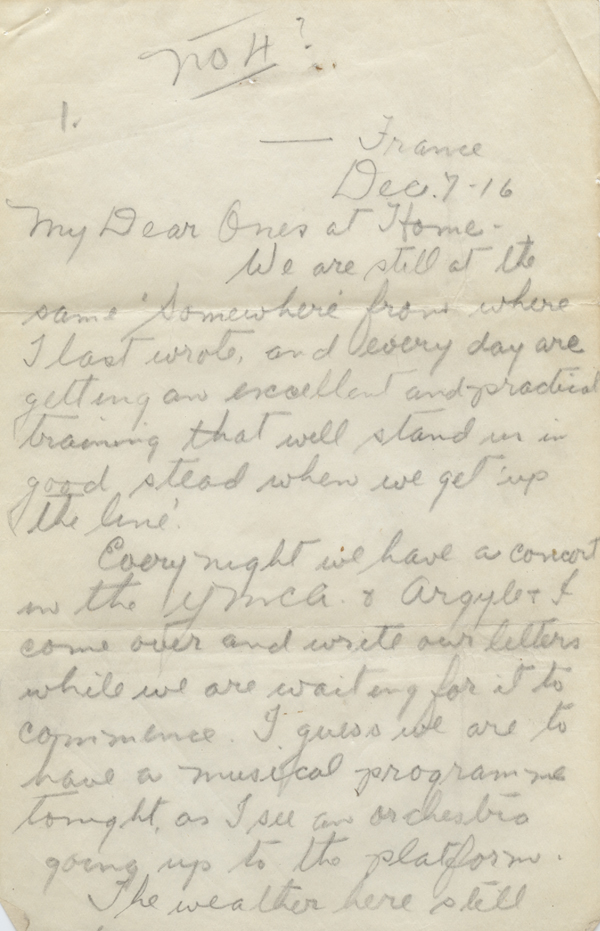 No 4?
1.
— France
Dec. 7-16
My Dear Ones at Home-
We are still at the
same 'Somewhere' from where
I last wrote, and every day are
getting an excellent and practical
training that will stand us in
good stead when we get 'up
the line'.
Every night we have a concert
in the YMCA. & Argyle & I
come over and write our letters
while we are waiting for it to
commence. I guess we are to
have a musical programme
tonight, as I see an orchestra
going up to the platform.
The weather here still